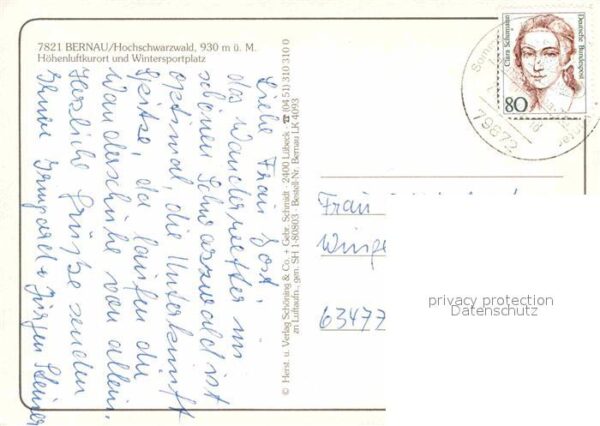 7821 BERNAU/Hochschwarzwald, 930 m ü. M.
Höhenluftkurort und Wintersportplatz
Liebe Frau Jost,
das Wanderwetter im
schönen Schwarzwald ist
optimal, die Unterkunft
Spitze, da laufen die
Wanderschuhe von allein.
Herzliche Grüße senden
Ihnen Irmgard + Jürgen
© Herst. u. Verlag Schöning & Co. + Gebr. Schmidt · 2400 Lübeck · ☎ (04 51) 310 310 0
an Luftaufn., gen. SH 1-80803 · Bestell-Nr. Bernau LK 4093
Clara Schumann
Deutsche Bundespost
80
79872
Frau
63477
privacy protection
Datenschutz